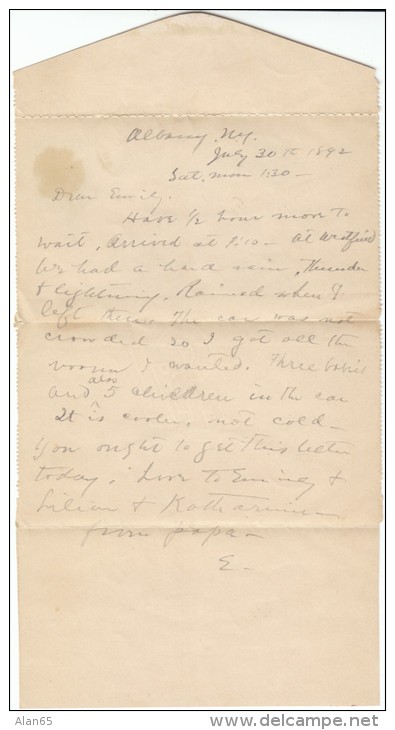 Albany, Ny.
July 30th 1892
Sat. morn 1:30 –
Dear Emily.
Have 1/2 hour more to
wait, arrived at 9:10 – At Westfield
we had a hard rain, Thunder
& lightning. Rained when I
left there. The car was not
crowded so I got all the
room I wanted. Three babies
and also 5 children in the car
It is cooler, not cold –
You ought to get this letter
today. Love to Emily &
Lilian & Katharine
from papa –
E –
Alan65
www.delcampe.net